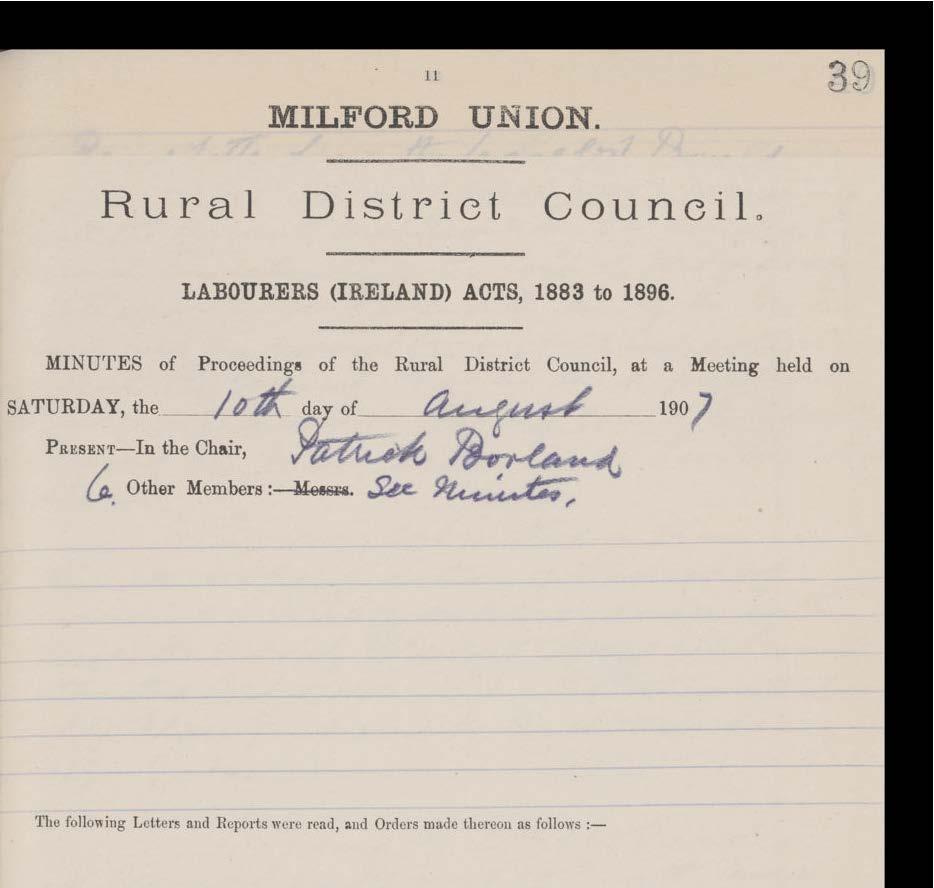 11
39
MILFORD UNION.
Rural District Council.
LABOURERS (IRELAND) ACTS, 1883 to 1896.
MINUTES of Proceedings of the Rural District Council, at a Meeting held on
SATURDAY, the 10th day of August 1907
PRESENT—In the Chair, Patrick Borland
6 Other Members :—Messrs. See Minutes,
The following Letters and Reports were read, and Orders made thereon as follows :—